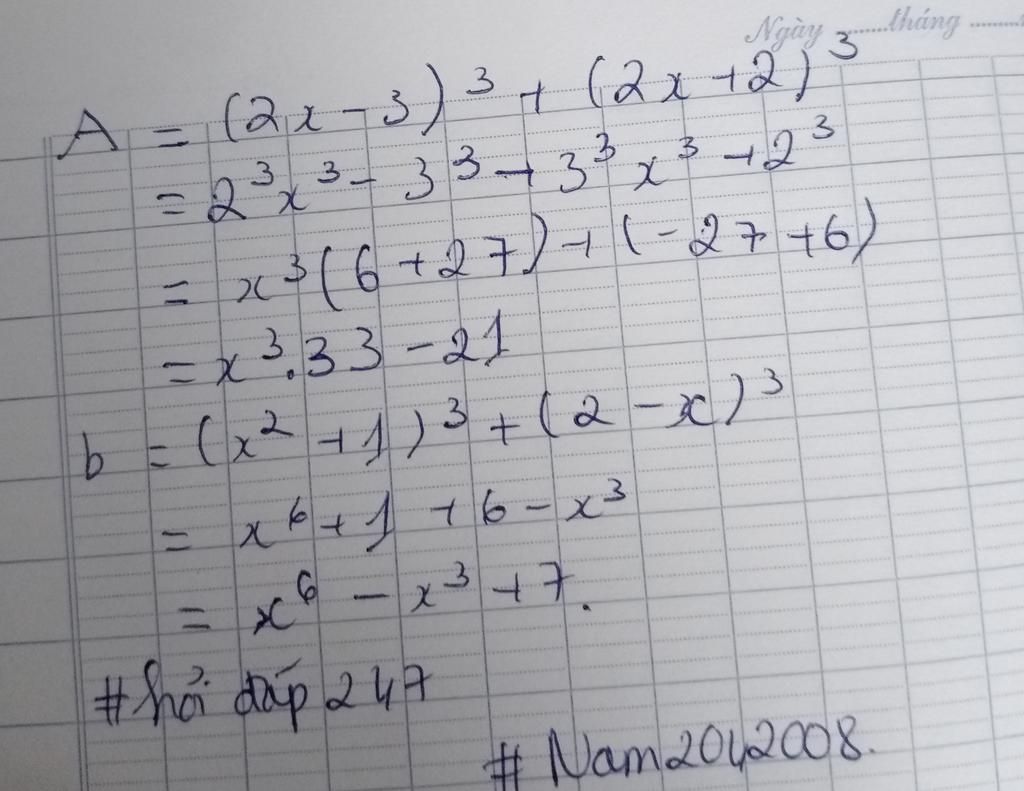 Ngày ......tháng ........
A = (2x - 3)³ + (2x + 2)³
= 2³x³ - 3³ + 3³x³ + 2³
= x³(6 + 27) + (-27 + 6)
= x³.33 - 21
b = (x² + 1)³ + (2 - x)³
= x⁶ + 1 + 6 - x³
= x⁶ - x³ + 7.
#hỏi đáp 247
#Nam2042008.